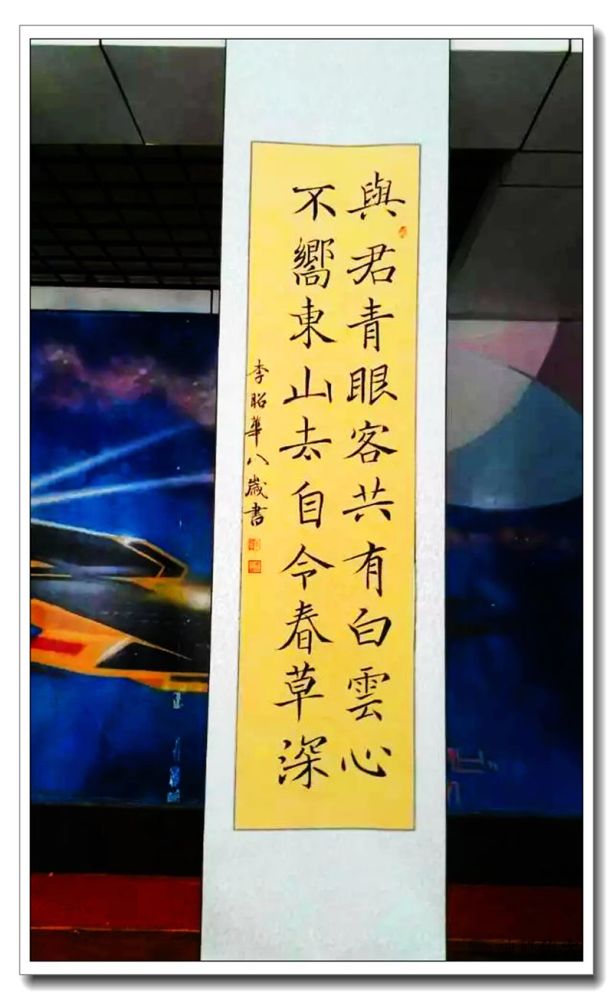 與君青眼客共有白雲心
不嚮東山去自令春草深
李昭華八歲書